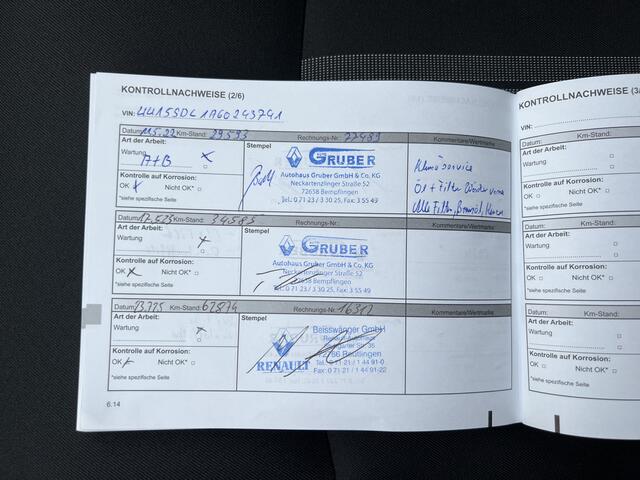 KONTROLLNACHWEISE (2/6)
VIN:
Datum: Km-Stand: 29593 Rechnungs-Nr. 77489 Kommentare/Wertmarke
Art der Arbeit:
Wartung
A+B X
Kontrolle auf Korrosion:
OK X Nicht OK*
*siehe spezifische Seite
Stempel
AUTO
GRUBER
Autohaus Gruber GmbH & Co. KG
Neckartenzlinger Straße 52
72658 Bempflingen
Tel.: 0 71 23 / 3 30 25, Fax: 3 55 49
Klimaservice
Öl + Filter
Alle Filter,
Datum: Km-Stand: 34583 Rechnungs-Nr. Kommentare/Wertmarke
Art der Arbeit:
Wartung X
Kontrolle auf Korrosion:
OK X Nicht OK*
*siehe spezifische Seite
Stempel
GRUBER
Autohaus Gruber GmbH & Co. KG
Neckartenzlinger Straße 52
72658 Bempflingen
Tel.: 0 71 23 / 3 30 25, Fax: 3 55 49
Datum: Km-Stand: 67874 Rechnungs-Nr. 16317 Kommentare/Wertmarke
Art der Arbeit:
Wartung X
Kontrolle auf Korrosion:
OK X Nicht OK*
*siehe spezifische Seite
Stempel
RENAULT
Beisswänger GmbH
72766 Reutlingen
Tel. 0 71 21 / 1 44 91-0
Fax 0 71 21 / 1 44 91-22
6.14
KONTROLLNACHWEISE (3/
VIN:
Datum: Km-Stand:
Art der Arbeit:
Wartung
Kontrolle auf Korrosion:
OK Nicht OK*
*siehe spezifische Seite
Datum: Km-Stand:
Art der Arbeit:
Wartung
Kontrolle auf Korrosion:
OK Nicht OK*
*siehe spezifische Seite
Datum: Km-Stand:
Art der Arbeit:
Wartung
Kontrolle auf Korrosion:
OK Nicht OK*
*siehe spezifische Seite